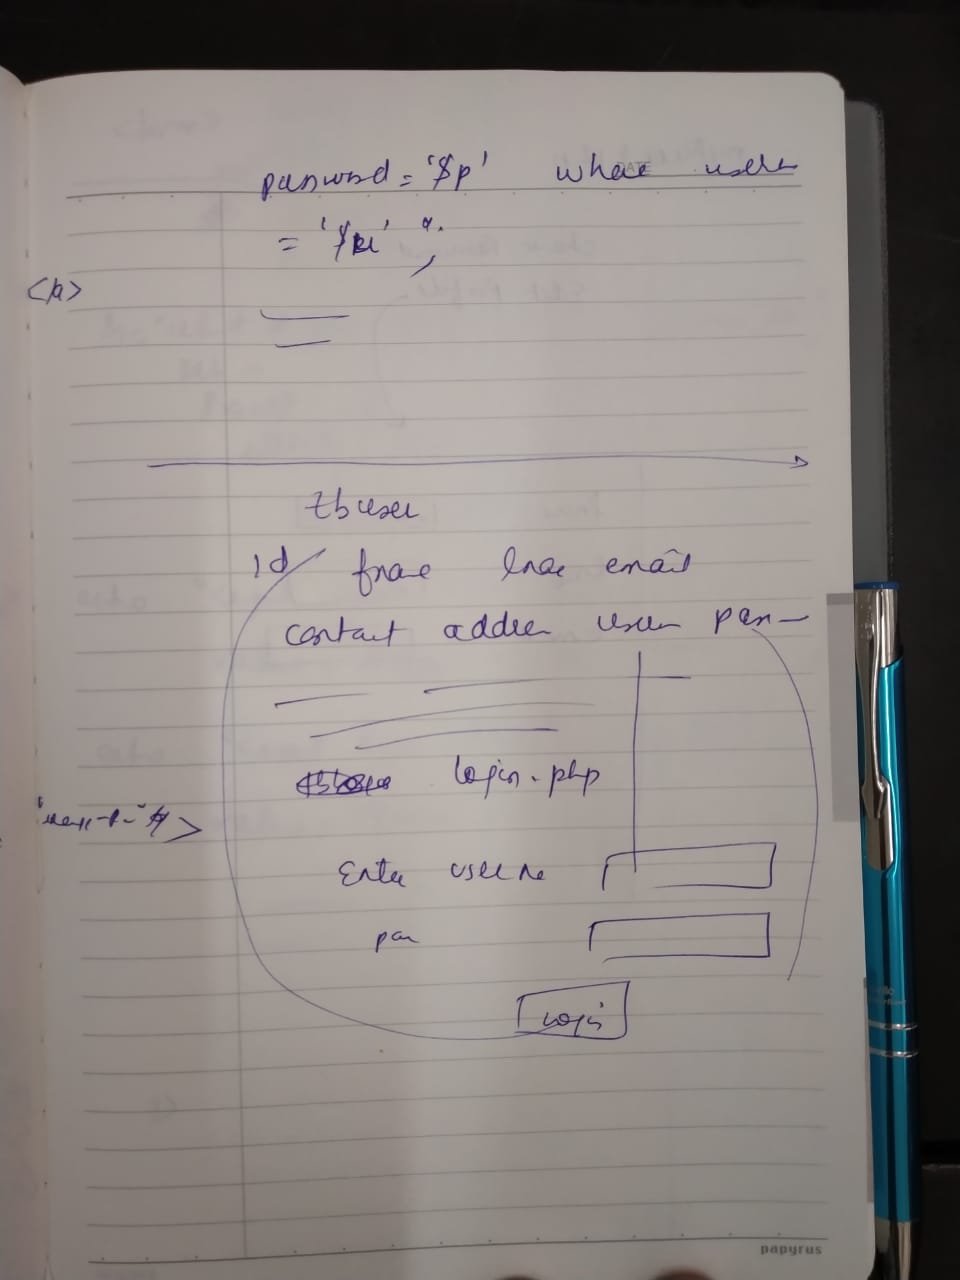 password = '$p' where user
= '$u' ";
</a>
tbuser
id fname lname email
contact address user pass
login.php
Enter userne
pass
Login
papyrus